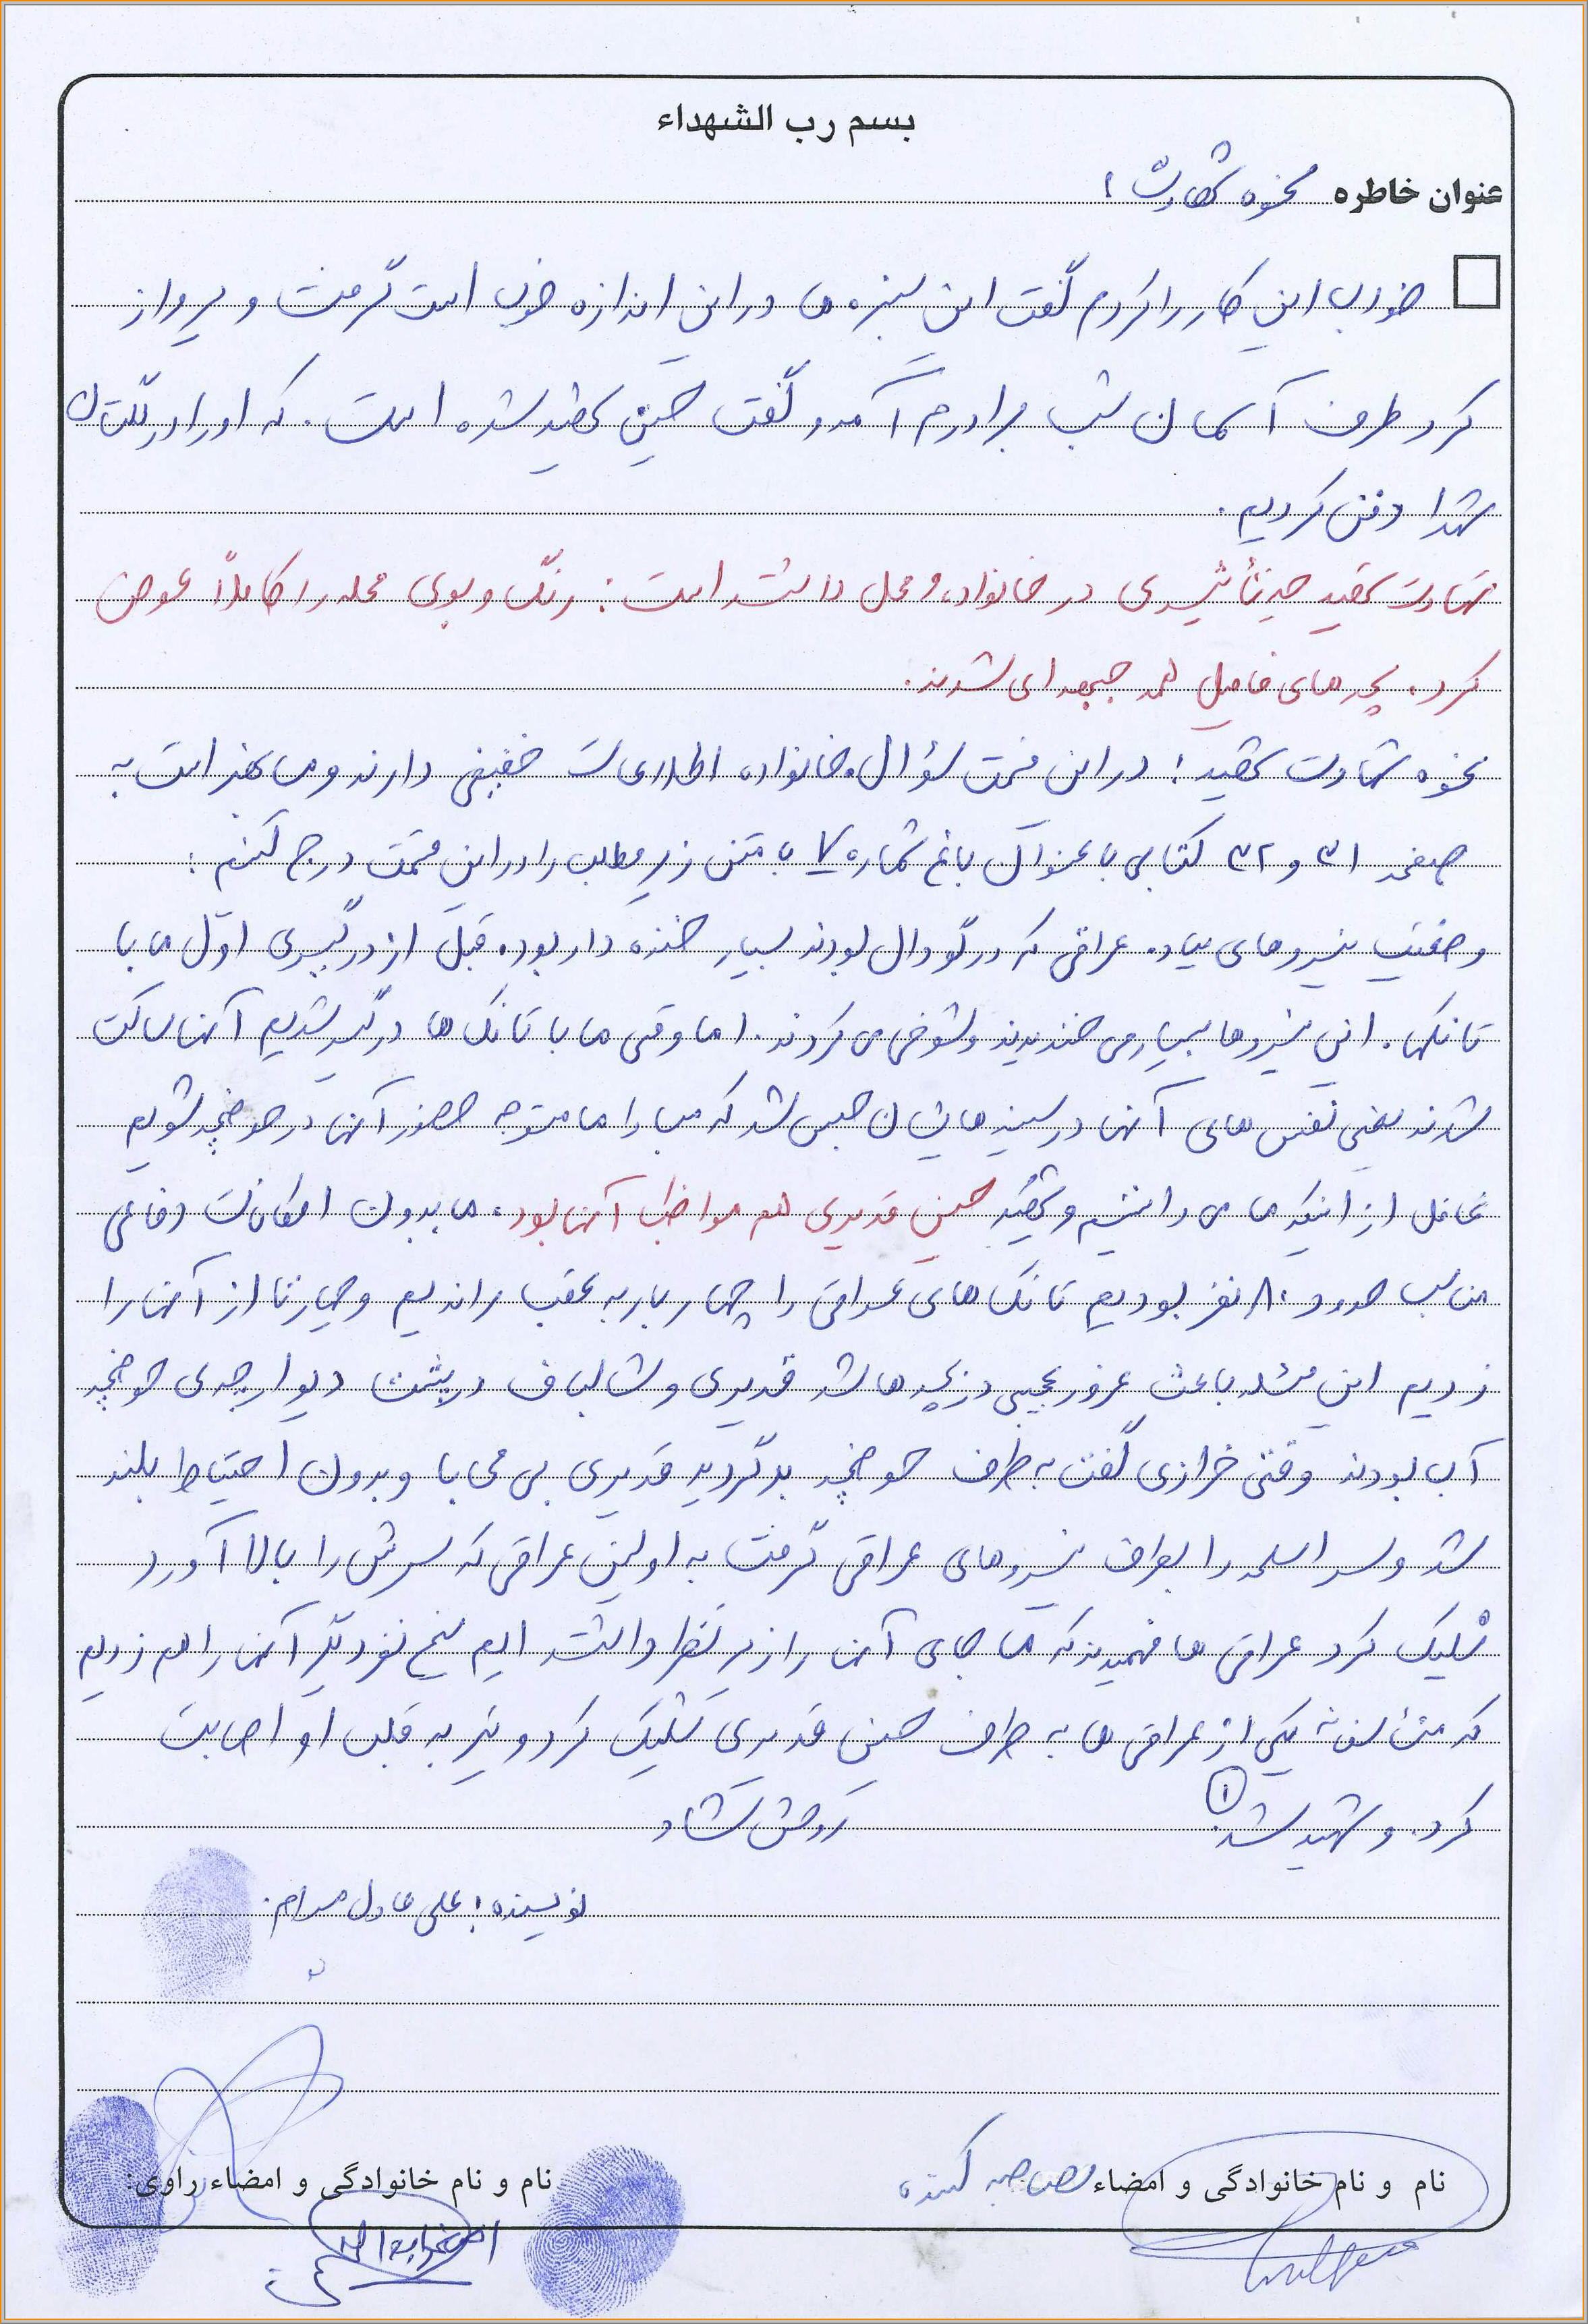 بسم رب الشهداء
عنوان خاطره نحوه شهادت :
خوب این کار را کردم گفت این سبزه ها در این اندازه خوب است گرفت و پرواز
کرد طرف آسمان شب برادرم آمد و گفت حسین شهید شده است. که او را در گلستان
شهدا دفن کردیم.
شهادت شهید چه تأثیری در خانواده و محل داشته است: رنگ و بوی محله را کاملاً عوض
کرد. بچه های فامیل همه جبهه ای شدند.
نحوه شهادت شهید: در این قسمت سؤال خانواده اطلاعات خفیفی دارند و بهتر است به
صفحه ۳۱ و ۳۲ کتابی با عنوان باغ شماره ۷ با متن زیر مطلب را در این قسمت درج کنم:
وضعیت نیروهای پیاده عراقی که در گودال بودند بسیار خنده دار بود. قبل از درگیری اول ما با
تانکها. این نیروها بسیار می خندیدند و شوخی می کردند. اما وقتی ما با تانک ها درگیر شدیم آنها ساکت
شدند یعنی نفس های آنها در سینه هایشان حبس شد که مبادا ما متوجه حضور آنها در حوضچه شویم
غافل از اینکه ما می دانستیم و شهید حسین قدیری هم مواظب آنها بود. ما بدون امکانات دفاعی
مناسب حدود ۸۰ نفر بودیم تانک های عراقی را چهار بار به عقب راندیم و چهار تا از آنها را
زدیم این مسئله باعث غرور عجیبی در بچه ها شد قدیری و شالباف در پشت دیوارچه ی حوضچه
آب بودند وقتی خرازی گفت به طرف حوضچه برگردید قدیری بی محابا و بدون احتیاط بلند
شد و سر اسلحه را بطرف نیروهای عراقی گرفت به اولین عراقی که سرش را بالا آورد
شلیک کرد عراقی ها فهمیدند که ما جای آنها را زیر نظر داشته ایم پنج نفر دیگر آنها را هم زدیم
که متأسفانه یکی از عراقی ها به طرف حسین قدیری شلیک کرد و تیر به قلب او اصابت
کرد. و شهید شد. ① روحش شاد
نویسنده: علی عادل مرام.
نام و نام خانوادگی و امضاء مصاحبه کننده
نام و نام خانوادگی و امضاء راوی: